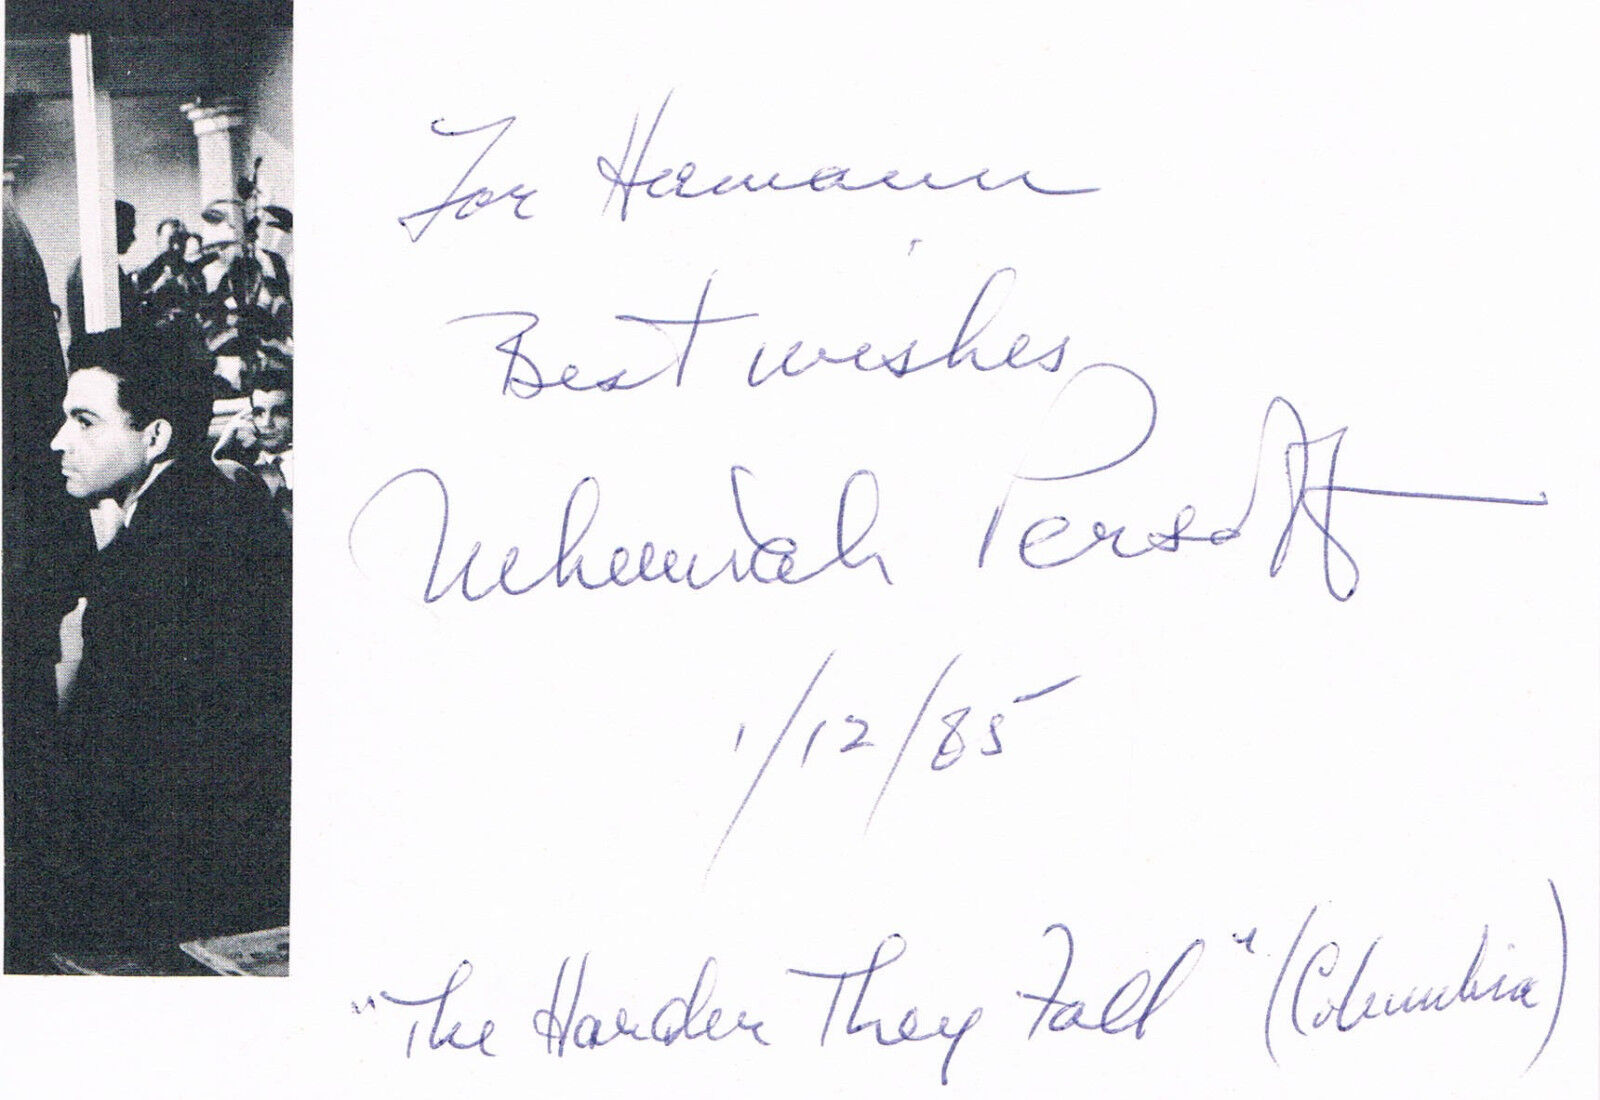 For Hermann
Best wishes
Nehemiah Persoff
1/12/85
"The Harder They Fall" (Columbia)